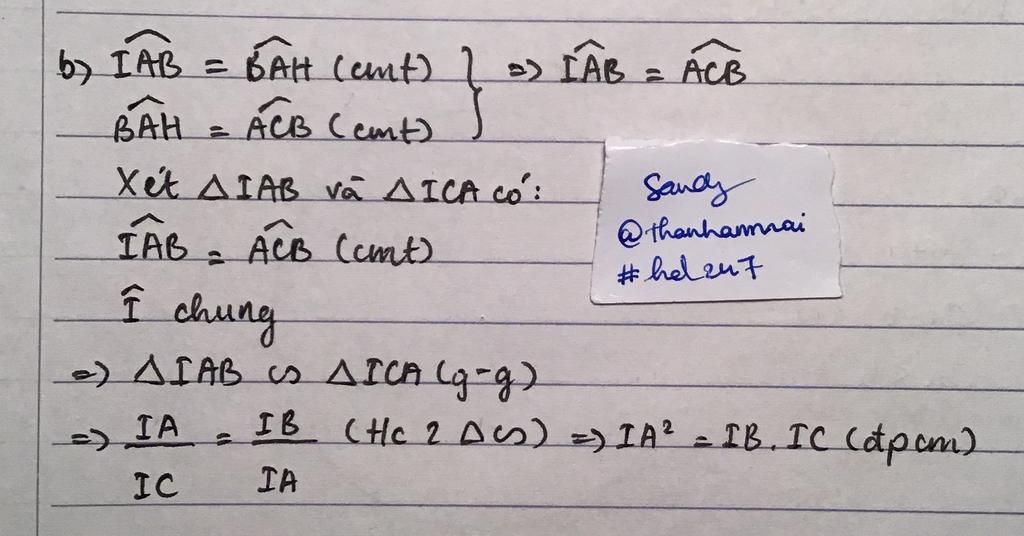 b) IAB = BAH (cmt) } => IAB = ACB
BAH = ACB (cmt)
Xét △IAB và △ICA có:
IAB = ACB (cmt)
Î chung
=> △IAB ∽ △ICA (g-g)
=> IA/IC = IB/IA (Hc 2 △∽) => IA² = IB.IC (đpcm)
Sandy
@thanhanmai
#hd247